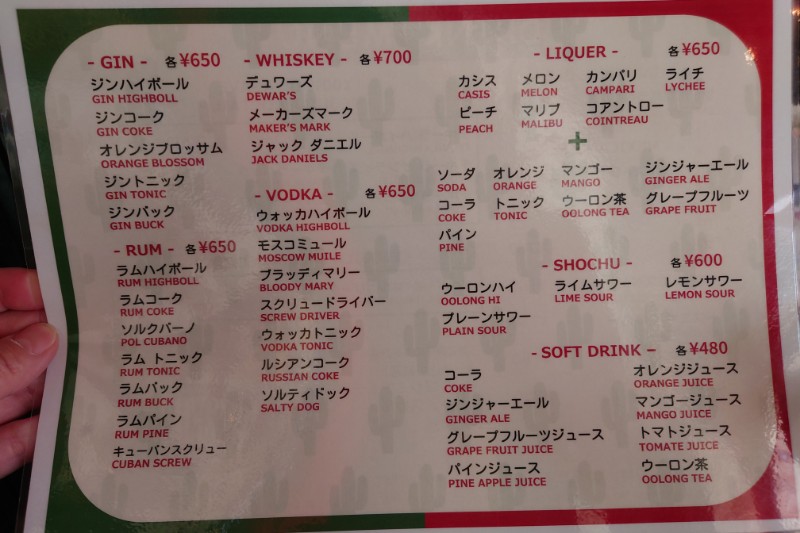 - GIN - 各¥650
ジンハイボール
GIN HIGHBOLL
ジンコーク
GIN COKE
オレンジブロッサム
ORANGE BLOSSOM
ジントニック
GIN TONIC
ジンバック
GIN BUCK
- RUM - 各¥650
ラムハイボール
RUM HIGHBOLL
ラムコーク
RUM COKE
ソルクバーノ
POL CUBANO
ラム トニック
RUM TONIC
ラムバック
RUM BUCK
ラムパイン
RUM PINE
キューバンスクリュー
CUBAN SCREW
- WHISKEY - 各¥700
デュワーズ
DEWAR'S
メーカーズマーク
MAKER'S MARK
ジャック ダニエル
JACK DANIELS
- VODKA - 各¥650
ウォッカハイボール
VODKA HIGHBOLL
モスコミュール
MOSCOW MUILE
ブラッディマリー
BLOODY MARY
スクリュードライバー
SCREW DRIVER
ウォッカトニック
VODKA TONIC
ルシアンコーク
RUSSIAN COKE
ソルティドック
SALTY DOG
- LIQUER - 各¥650
カシス メロン カンパリ ライチ
CASIS MELON CAMPARI LYCHEE
ピーチ マリブ コアントロー
PEACH MALIBU COINTREAU
+
ソーダ オレンジ マンゴー ジンジャーエール
SODA ORANGE MANGO GINGER ALE
コーラ トニック ウーロン茶 グレープフルーツ
COKE TONIC OOLONG TEA GRAPE FRUIT
パイン
PINE
- SHOCHU - 各¥600
ウーロンハイ ライムサワー レモンサワー
OOLONG HI LIME SOUR LEMON SOUR
プレーンサワー
PLAIN SOUR
- SOFT DRINK - 各¥480
コーラ オレンジジュース
COKE ORANGE JUICE
ジンジャーエール マンゴージュース
GINGER ALE MANGO JUICE
グレープフルーツジュース トマトジュース
GRAPE FRUIT JUICE TOMATE JUICE
パインジュース ウーロン茶
PINE APPLE JUICE OOLONG TEA